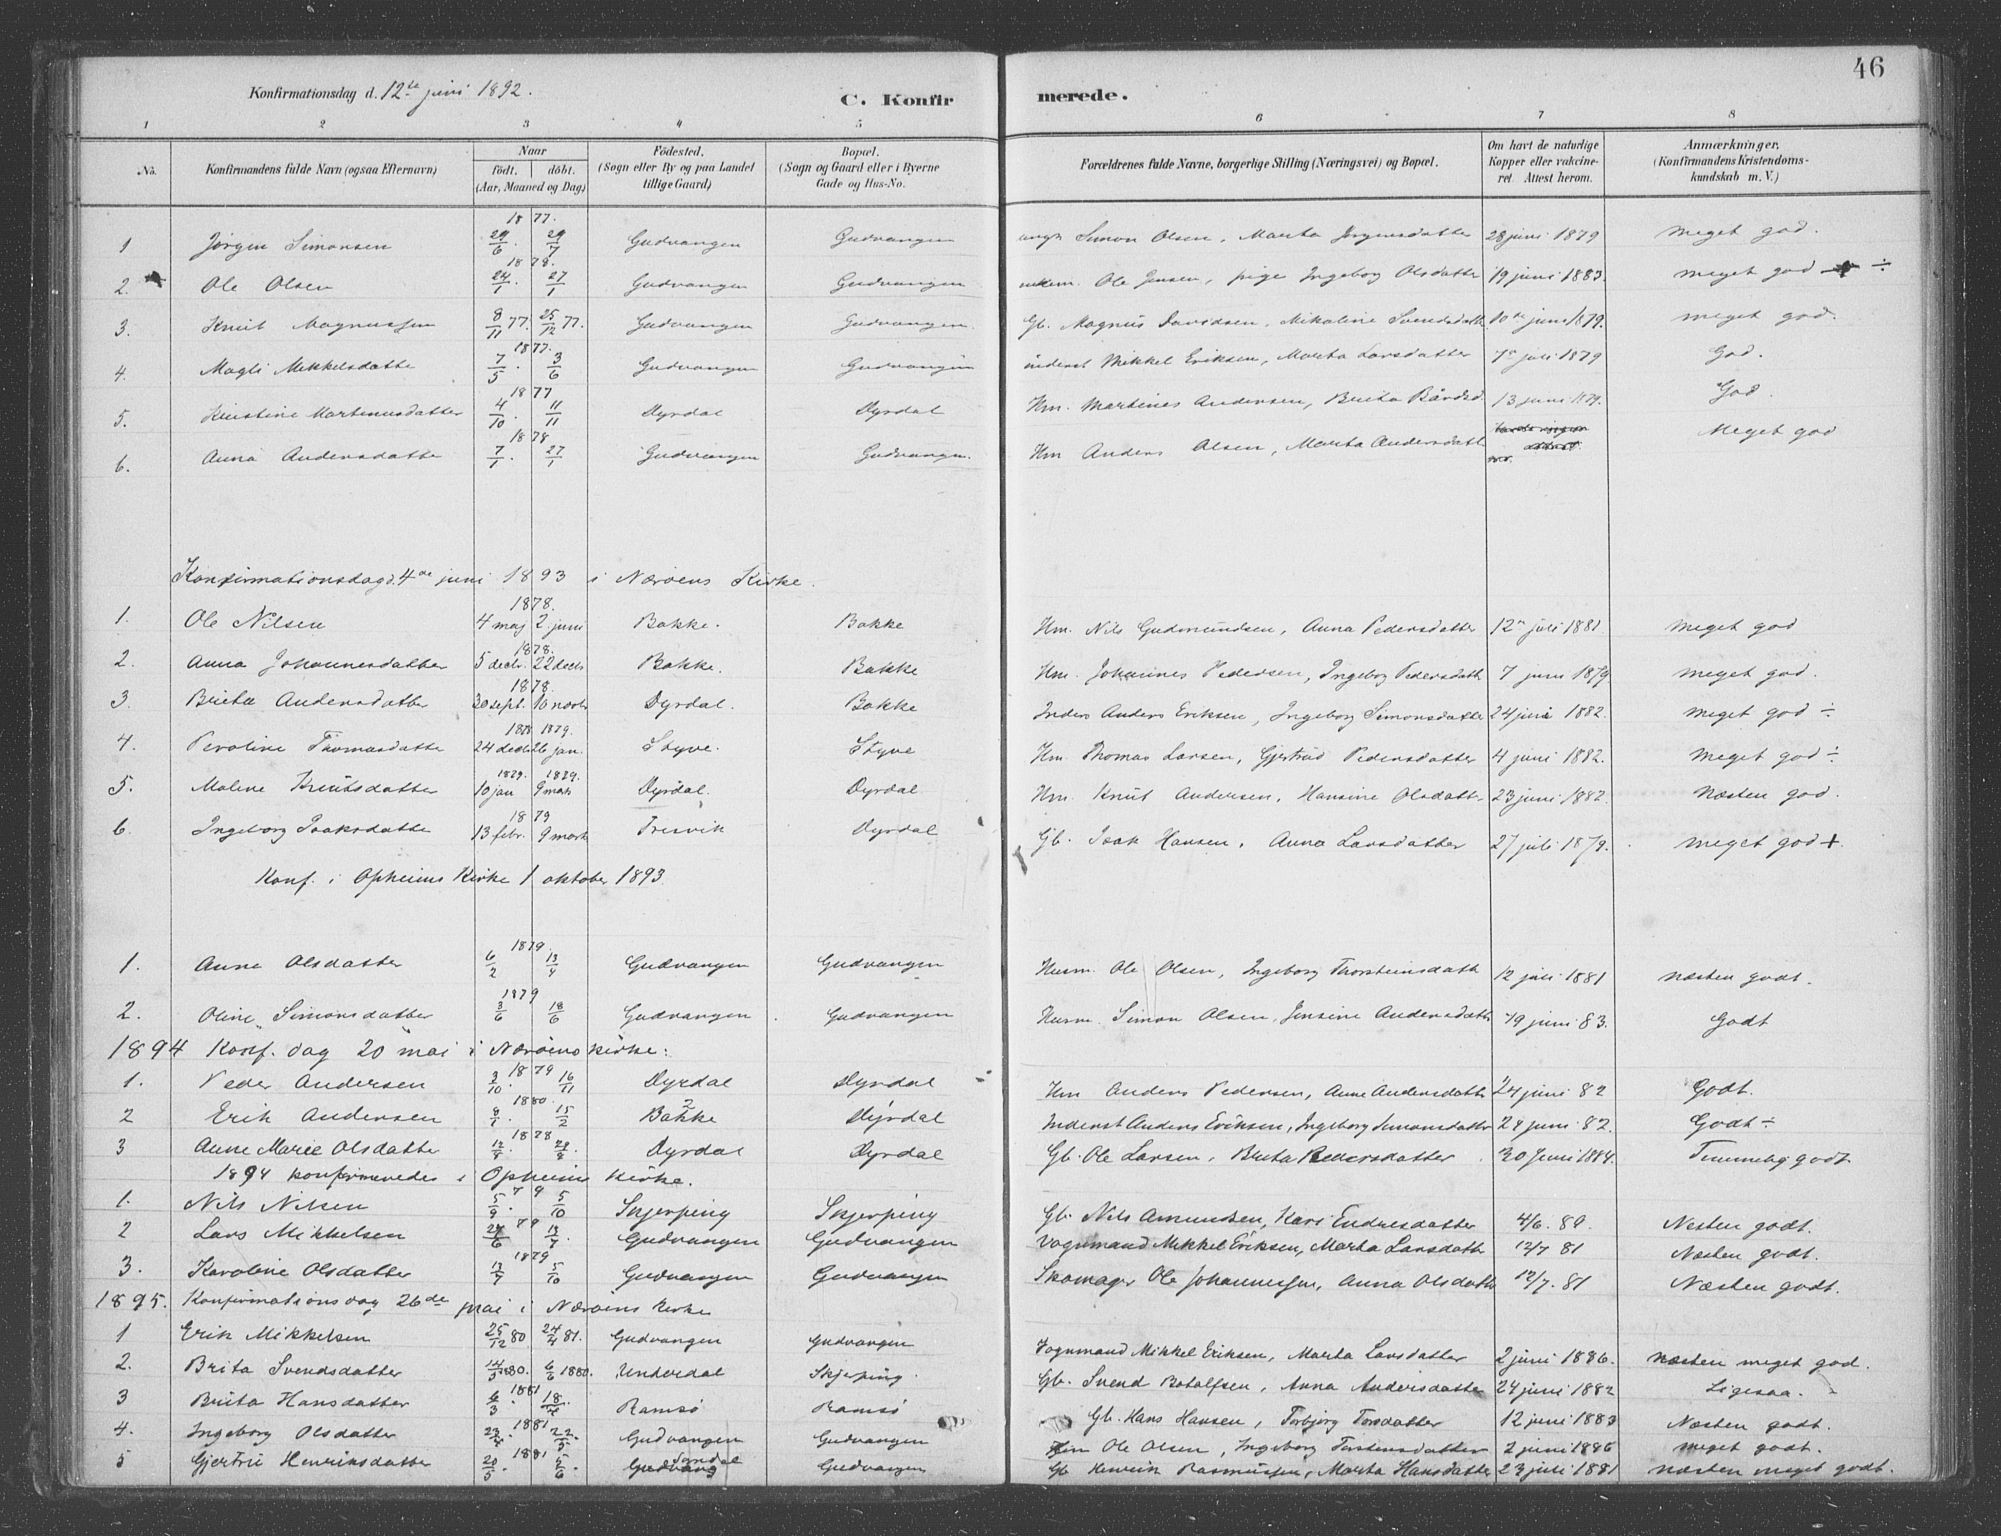 46
Konfirmationsdag d. 12te juni 1892.
C. Konfirmerede.
1 2 3 4 5 6 7 8
No. Konfirmandens fulde Navn (ogsaa Efternavn) Naar født. døbt. (Aar, Maaned og Dag) Fødested. (Sogn eller By og paa Landet tillige Gaard) Bopæl. (Sogn og Gaard eller i Byerne Gade og Hus-No. Forældrenes fulde Navne, borgerlige Stilling (Næringsvei) og Bopæl. Om havt de naturlige Kopper eller vakcineret. Attest herom. Anmærkninger. (Konfirmandens Kristendomskundskab m. V.)
1877.
1 Jørgen Simonsen 29/6. 29/7 Gudvangen Gudvangen Simon Olsen, Marta Jørgensdatter 28 juni 1879 Meget god.
1878.
2. Ole Olsen 24/1. 27/1 Gudvangen Gudvangen Ole Jensen, pige Ingeborg Olsdatter 19 juni 1883. Meget god ÷
3. Knut Magnussen 8/11 77. 25/12 77. Gudvangen Gudvangen. Gb. Magnus Davidsen, Mikaline Svendsdatter 10de juni 1879. Meget god.
1877.
4. Magli Mikkelsdatter 7/5. 3/6 Gudvangen Gudvangen inderst Mikkel Eriksen, Marta Larsdatter 7de juli 1879 God.
1877
5. Kristine Martinusdatter 4/10. 11/11 Dyrdal Dyrdal Hm. Martinus Andersen, Brita Bårdsd. 13 juni 1879. God.
1878
6. Anna Andersdatter 7/1. 27/1 Gudvangen Gudvangen. Hm Anders Olsen, Marta Andersdatt Meget god
Konfirmationsdag d. 4de juni 1893 i Nærøens Kirke.
1878.
1. Ole Nilsen 4 maj 2 juni Bakke. Bakke Hm. Nils Gudmundsen, Anna Pedersdatter 12te juli 1881 Meget god
1878.
2. Anna Johannesdatter 5 decbr. 22 decb Bakke. Bakke Hm. Johannes Pedersen, Ingeborg Pedersdatt 7 juni 1879 Meget god.
1878.
3. Brita Andersdatter 30 sept. 10 novbr Dyrdal. Bakke Inders Anders Eriksen, Ingeborg Simonsdatter 24 juni 1882. Meget god ÷
1878 1879.
4. Peroline Thomasdatte 24 decb 26 jan. Styve. Styve Hm. Thomas Larsen, Gjertrud Pedersdatter 4 juni 1882. Meget god ÷
1879. 1879.
5. Malene Knutsdatter 10 jan 9 mars Dyrdal. Dyrdal Hm. Knut Andersen, Hansine Olsdatt 23 juni 1882. Næsten god.
1879
6. Ingeborg Isaksdatte 13 febr. 9 mars Tresvik Dyrdal Gb. Isak Hansen, Anna Larsdatter 27 juli 1879. Meget god +.
Konf. i Opheims Kirke 1 oktober 1893.
1879.
1. Anna Olsdatter 6/2 13/4 Gudvangen Gudvangen Husm. Ole Olsen, Ingeborg Thorsteinsdatt 12 juli 1881 Næsten godt.
1879
2. Oline Simonsdatter 3/6 18/6 Gudvangen. Gudvangen Husm. Simon Olsen, Jensine Andersdatte 19 juni 83. Godt
1894 Konf. dag 20 mai i Nærøens kirke:
1879
1. Peder Andersen 3/10. 16/11 Dyrdal Dyrdal Hm Anders Pedersen, Anne Andersdatt 24 juni 82 Godt.
1880.
2 Erik Andersen 8/1. 15/2 Bakke Dyrdal Inderst Anders Eriksen, Ingeborg Simonsdatter 24 juni 82. Godt ÷
1878
3 Anne Marie Olsdatter Dyrdal Dyrdal Gb. Ole Larsen, Brita Pedersdatter. 30 Juni 1884. Temmelig godt
1894 konfirmeredes i Opheims kirke.
79
1. Nils Nilsen 5/9. 5/10 Skjerping Skjerping Gb. Nils Amundsen, Kari Endresdatter 4/6. 80. Næsten godt.
79
2 Lars Mikkelsen 24/6 13/7. Gudvangen Gudvangen Vognmand Mikkel Eriksen, Marta Larsdatt 12/7 81 Næsten godt.
1879
3. Karoline Olsdatter 5/10 Gudvangen Gudvangen Skomager Ole Johannessen, Anna Olsdatt 12/7. 81 Næsten godt.
1895. Konfirmationsdag 26de mai i Nærøens kirke
1 Erik Mikkelsen 25/12 80 24/4 81. Gudvangen Gudvangen Vognmand Mikkel Eriksen, Marta Larsdatter 2 juni 1886. Næsten meget god.
2. Brita Svendsdatter 14/5 1880. 6/6 1880. Underdal Skjerping. Gb. Svend Botolfsen, Anna Andersdatter 24 juni 1882 Ligesaa.
1881
3 Brita Hansdatter 6/3. 18/4. Ramsø Ramsø Gb. Hans Hansen, Torbjørg Torsdatter 12 juni 1883 Næsten godt.
1881
4. Ingeborg Olsdatter 23/4. 22/5. Gudvangen Gudvangen Hm Ole Olsen, Ingeborg Torstensdatter 2 juni 1886 Meget godt.
1881
5 Gjertrü Henriksdatter 20/5. 5/6 Gudvang Gudvangen Gb Henrik Rasmussen, Marta Hansdatter 23 juli 1881 Næsten meget godt.